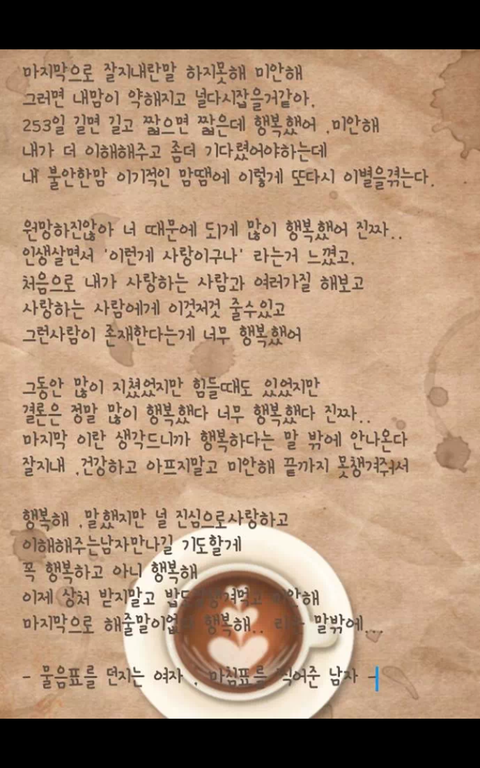 마지막으로 잘지내란말 하지못해 미안해
그러면 내맘이 약해지고 널다시잡을거같아.
253일 길면 길고 짧으면 짧은데 행복했어 ,미안해
내가 더 이해해주고 좀더 기다렸어야하는데
내 불안한맘 이기적인 맘땜에 이렇게 또다시 이별을겪는다.
원망하진않아 너 때문에 되게 많이 행복했어 진짜..
인생살면서 '이런게 사랑이구나' 라는거 느꼈고,
처음으로 내가 사랑하는 사람과 여러가질 해보고
사랑하는 사람에게 이것저것 줄수있고
그런사람이 존재한다는게 너무 행복했어
그동안 많이 지쳤었지만 힘들때도 있었지만
결론은 정말 많이 행복했다 너무 행복했다 진짜..
마지막 이란 생각드니까 행복하다는 말 밖에 안나온다
잘지내 ,건강하고 아프지말고 미안해 끝까지 못챙겨줘서
행복해 ,말했지만 널 진심으로사랑하고
이해해주는남자만나길 기도할게
꼭 행복하고 아니 행복해
이제 상처 받지말고 밥도 챙겨먹고 미안해
마지막으로 해줄말이없네 행복해.. 라는 말밖에
- 물음표를 던지는 여자 , 마침표를 찍어준 남자 -